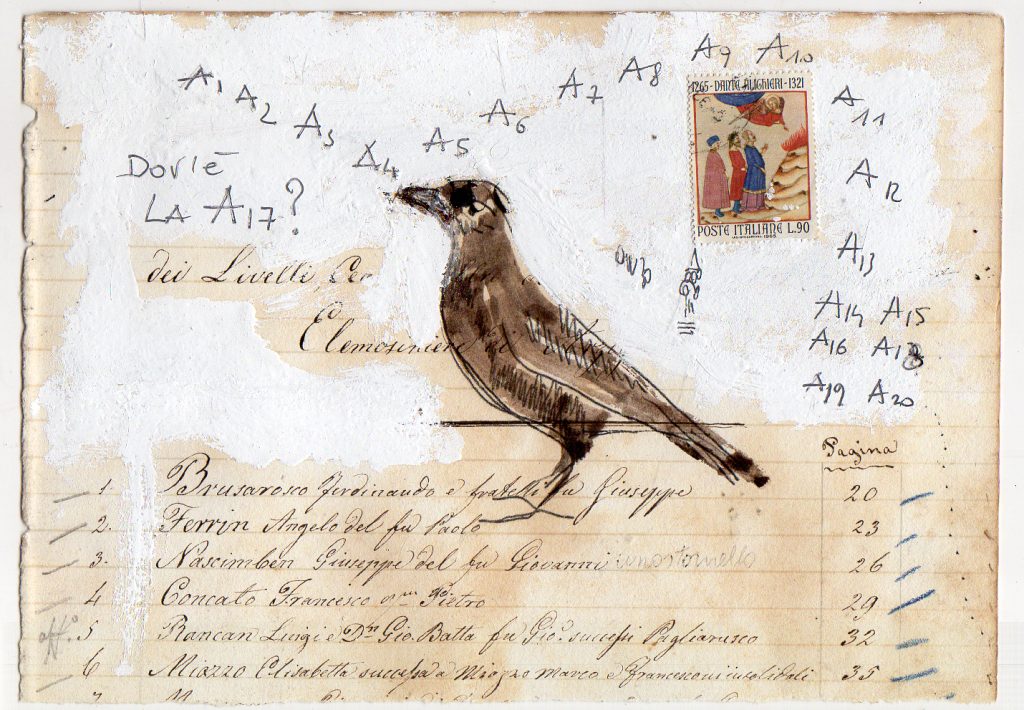 A9 A10
A8
A7
A6
A5
A1 A2 A3 A4
1265-DANTE ALIGHIERI-1321
POSTE ITALIANE L.90
A11
A12
A13
A14 A15
A16 A18
A19 A20
DOV'È
LA A17?
dei Livelli,
Elemosiniere
Pagina
1. Brusarosco Ferdinando e fratelli fu Giuseppe 20
2. Ferrin Angelo del fu Paolo 23
3. Nascimben Giuseppe del fu Giovanni uno stornello 26
4 Concato Francesco qm Pietro 29
5 Rancan Luigi e Gio. Batta fu Gio. successi Pagliarusco 32
6 Miozzo Elisabetta successa a Miozzo Marco e 35